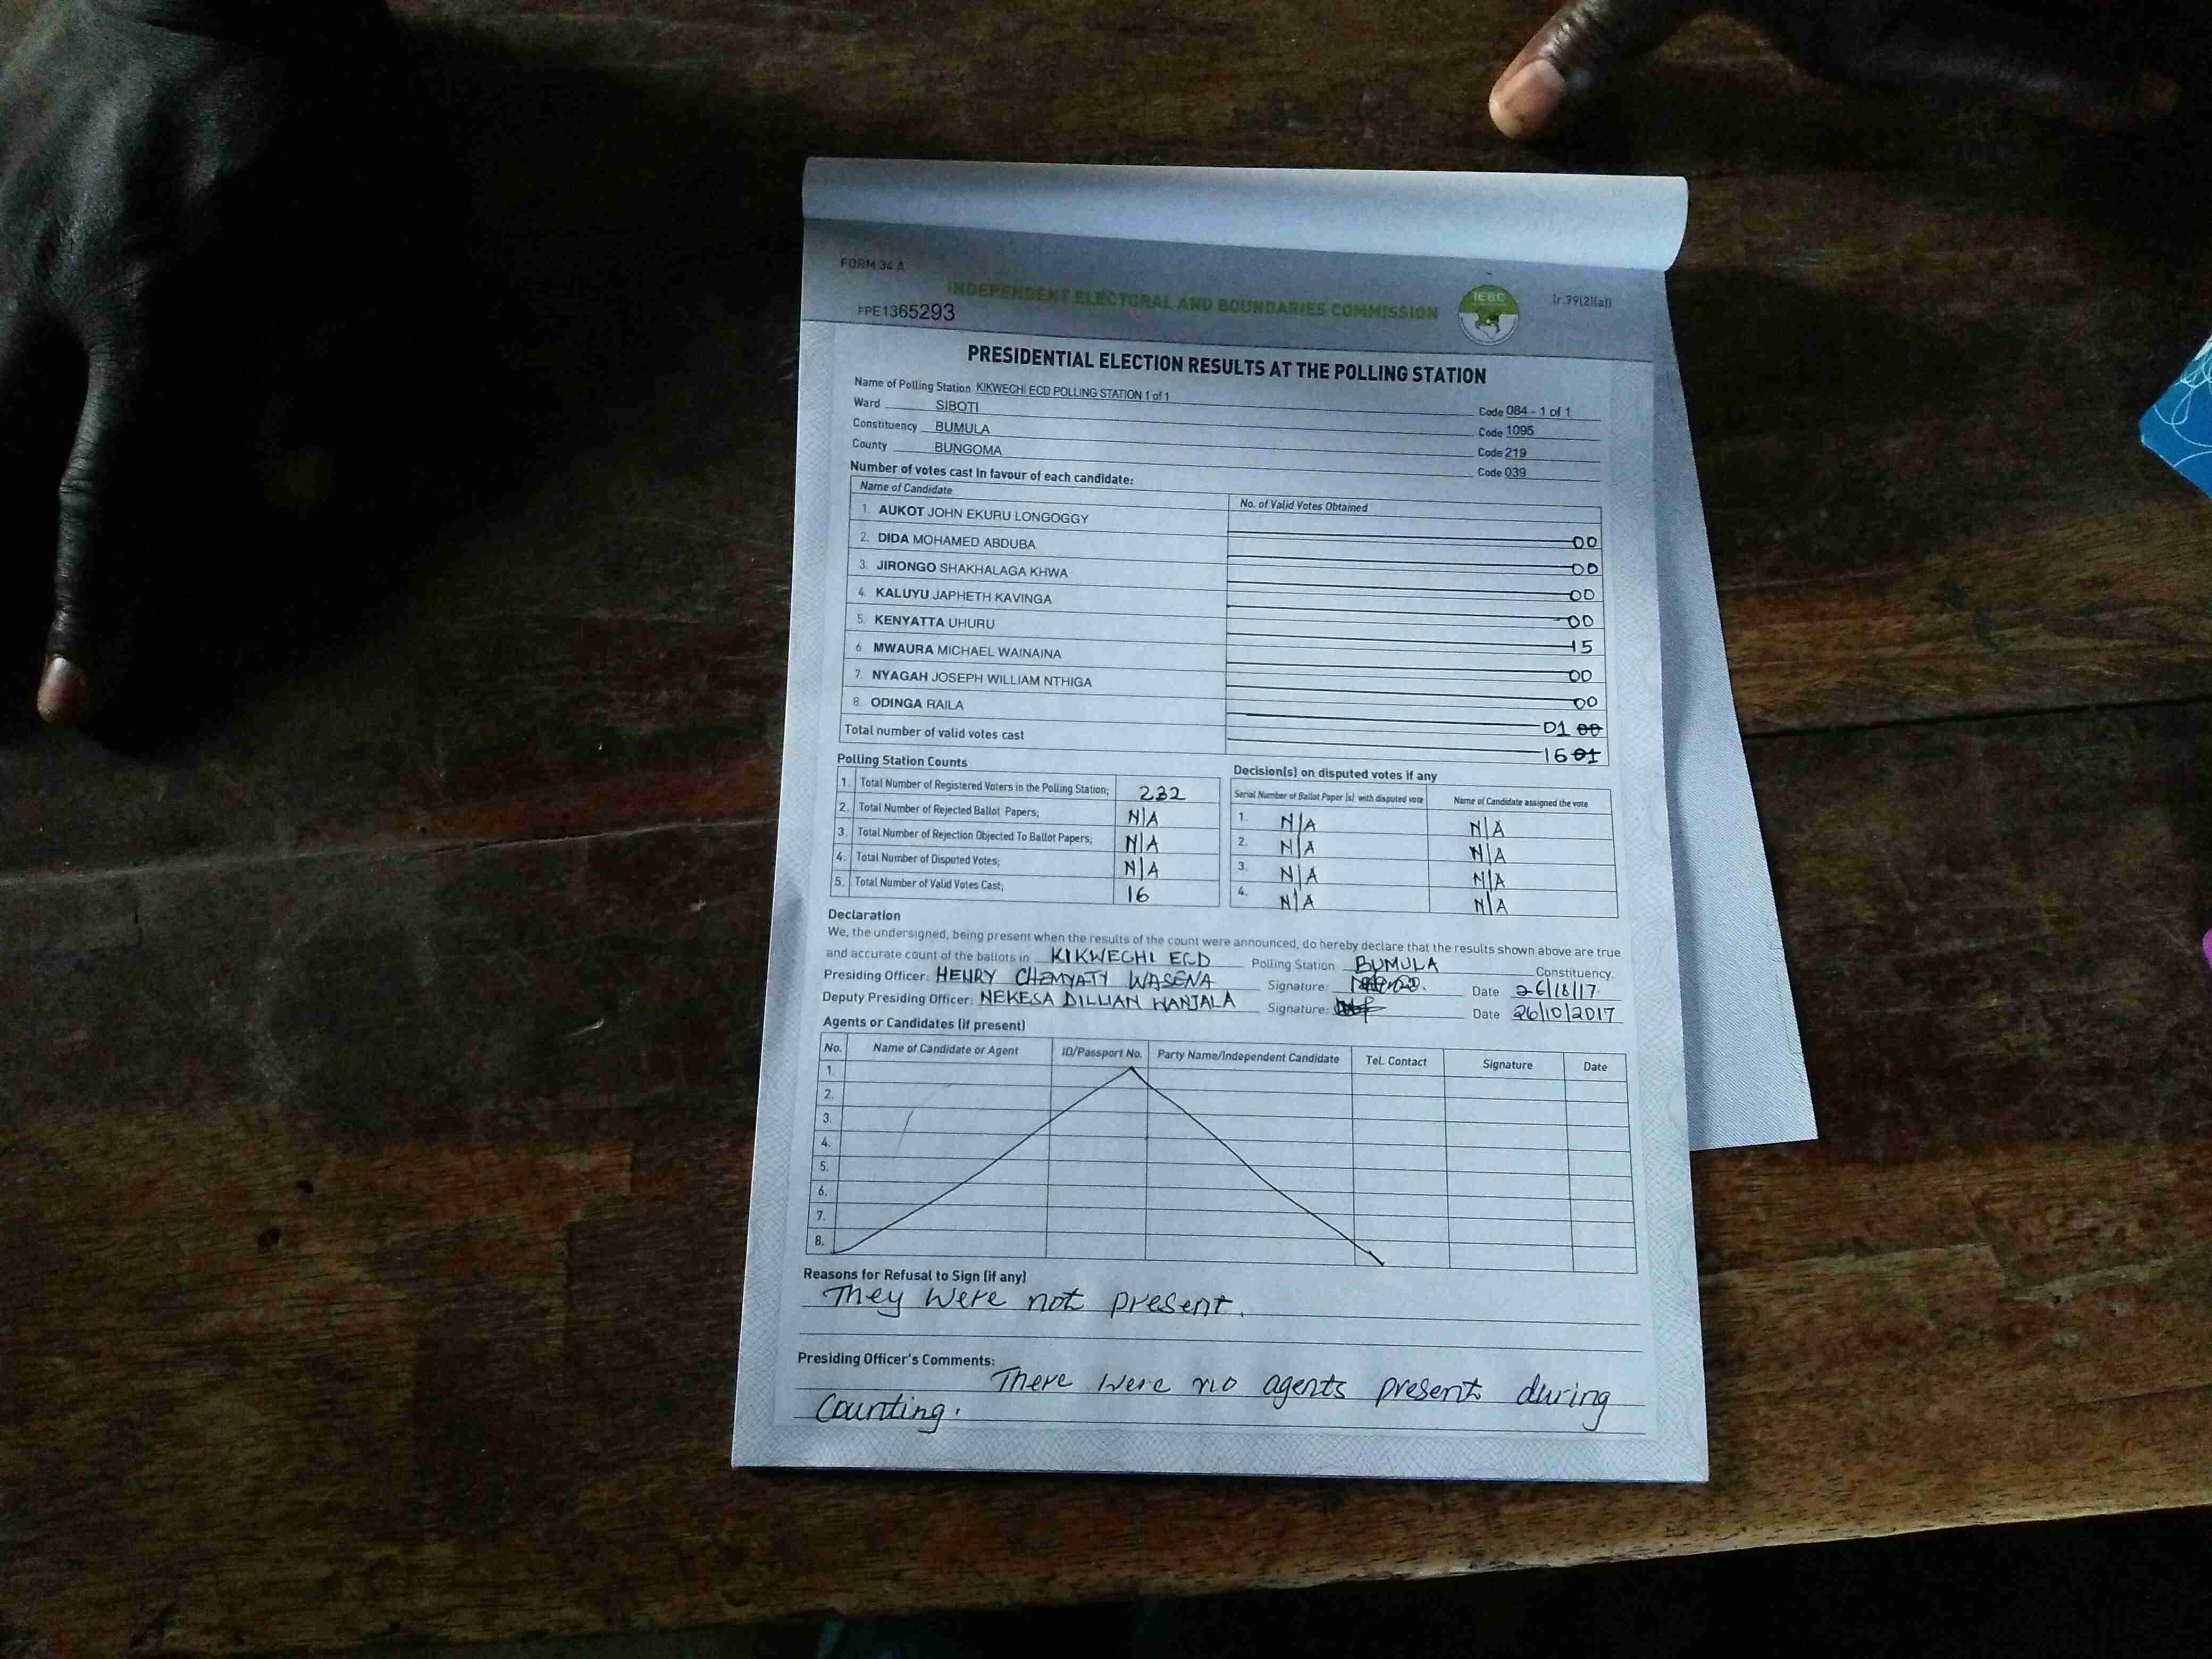 FORM 34 A
INDEPENDENT ELECTORAL AND BOUNDARIES COMMISSION
IEBC
(r.79(2)(a))
FPE1365293
PRESIDENTIAL ELECTION RESULTS AT THE POLLING STATION
Name of Polling Station KIKWECHI ECD POLLING STATION 1 of 1 Code 084 - 1 of 1
Ward SIBOTI Code 1095
Constituency BUMULA Code 219
County BUNGOMA Code 039
Number of votes cast in favour of each candidate:
Name of Candidate No. of Valid Votes Obtained
1. AUKOT JOHN EKURU LONGOGGY 00
2. DIDA MOHAMED ABDUBA 00
3. JIRONGO SHAKHALAGA KHWA 00
4. KALUYU JAPHETH KAVINGA 00
5. KENYATTA UHURU 15
6. MWAURA MICHAEL WAINAINA 00
7. NYAGAH JOSEPH WILLIAM NTHIGA 00
8. ODINGA RAILA 01 00
Total number of valid votes cast 16 01
Polling Station Counts
1. Total Number of Registered Voters in the Polling Station; 232
2. Total Number of Rejected Ballot Papers; N/A
3. Total Number of Rejection Objected To Ballot Papers; N/A
4. Total Number of Disputed Votes; N/A
5. Total Number of Valid Votes Cast; 16
Decision(s) on disputed votes if any
Serial Number of Ballot Paper (s) with disputed vote Name of Candidate assigned the vote
1. N/A N/A
2. N/A N/A
3. N/A N/A
4. N/A N/A
Declaration
We, the undersigned, being present when the results of the count were announced, do hereby declare that the results shown above are true
and accurate count of the ballots in KIKWECHI ECD Polling Station BUMULA Constituency.
Presiding Officer: HENRY CHEMYATY WASENA Signature: Date
Deputy Presiding Officer: NEKESA DILLIAN WANJALA Signature: Date 26/10/2017
Agents or Candidates (if present)
No. Name of Candidate or Agent ID/Passport No. Party Name/Independent Candidate Tel. Contact Signature Date
1.
2.
3.
4.
5.
6.
7.
8.
Reasons for Refusal to Sign (if any)
They were not present.
Presiding Officer's Comments:
There were no agents present during
Counting.